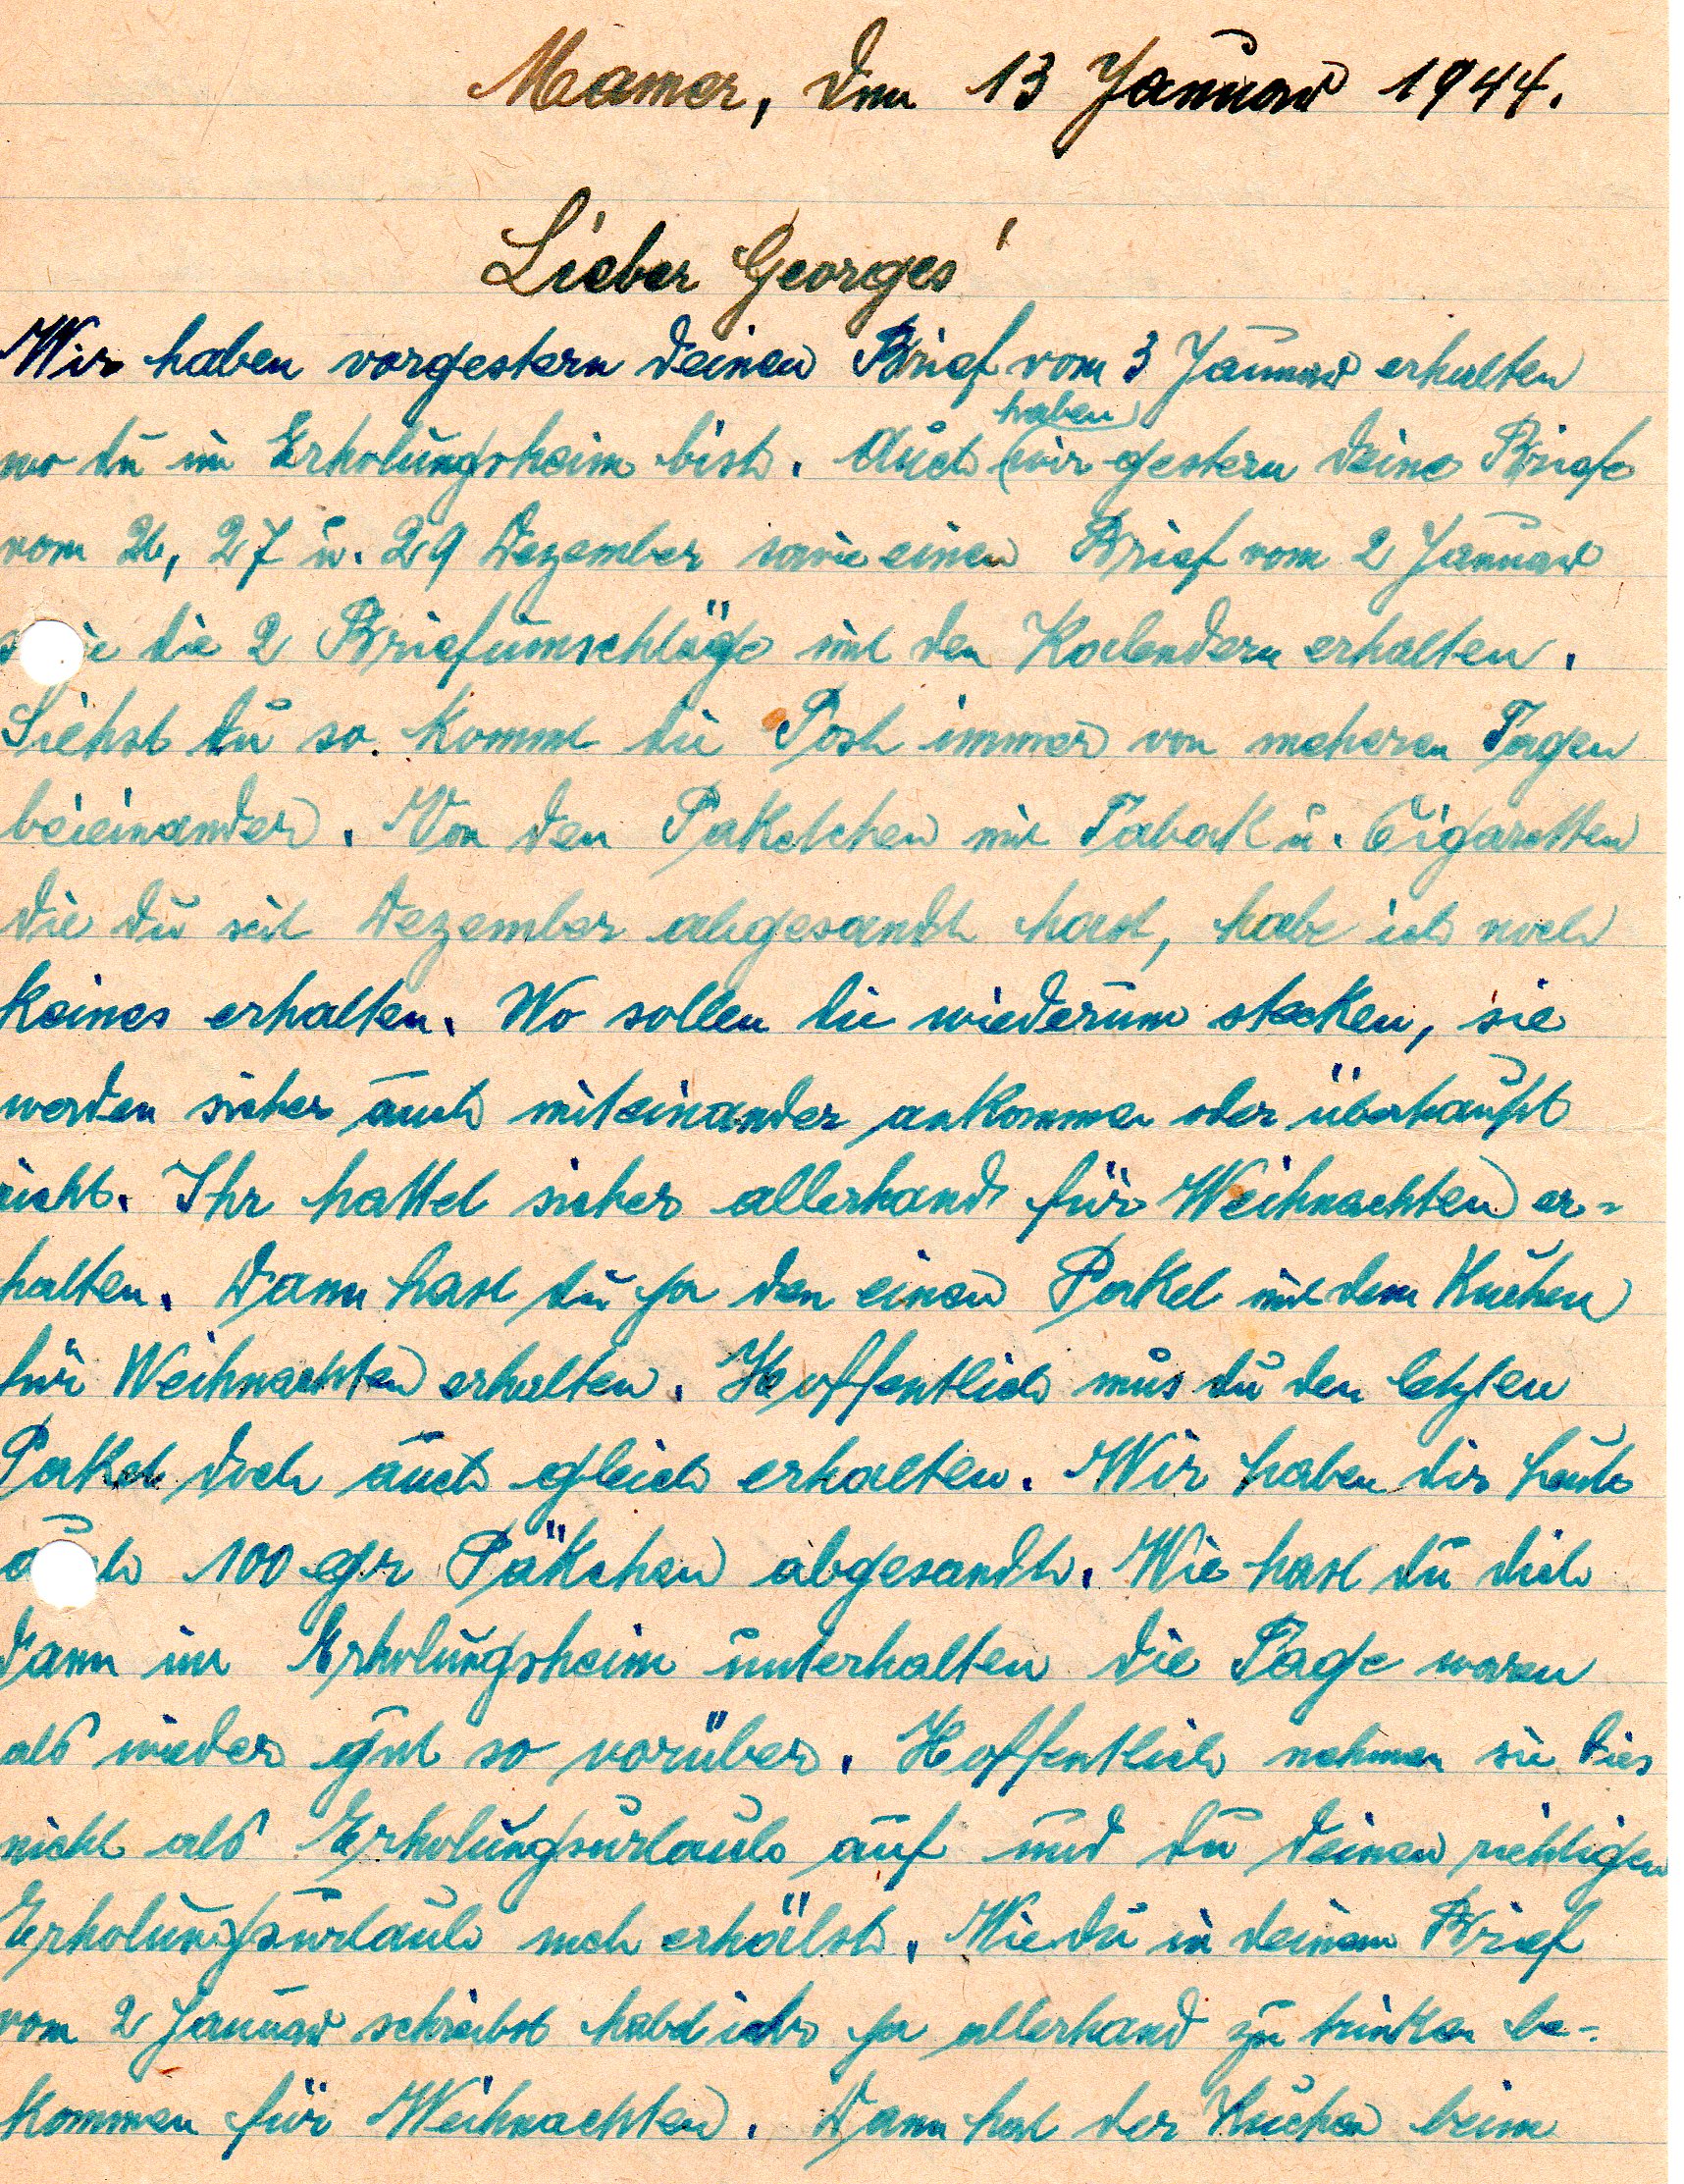 Mamer, den 13 Januar 1944.
Lieber Georges!
Wir haben vorgestern deinen Brief vom 3 Januar erhalten
wo du im Erholungsheim bist. Auch haben wir gestern deine Briefe
vom 26, 27 u. 29 Dezember sowie einen Brief vom 2 Januar
die 2 Briefumschläge mit den Kalendern erhalten.
Siehst du so kommt die Post immer von meheren Tagen
beieinander. Von den Paketchen mit Tabak u. Cigaretten
die du seit Dezember abgesandt hast, habe ich noch
keines erhalten. Wo sollen die wiederum stecken, sie
werden sicher auch miteinander ankommen oder überhaupt
nicht. Ihr hattet sicher allerhand für Weihnachten er=
halten. Dann hast du ja den einen Paket mit dem Kuchen
für Weihnachten erhalten. Hoffentlich mus du den letzten
Paket doch auch gleich erhalten. Wir haben dir heute
100 gr Päkchen abgesandt. Wie hast du dich
dann im Erholungsheim unterhalten die Tage waren
als wieder gut so vorüber. Hoffentlich nehmen sie dies
nicht als Erholungsurlaub auf und du deinen richtigen
Erholungsurlaub noch erhälst. Wie du in deinem Brief
vom 2 Januar schreibst habt ihr ja allerhand zu trinken be=
kommen für Weihnachten. Dann hat der Kuchen beim